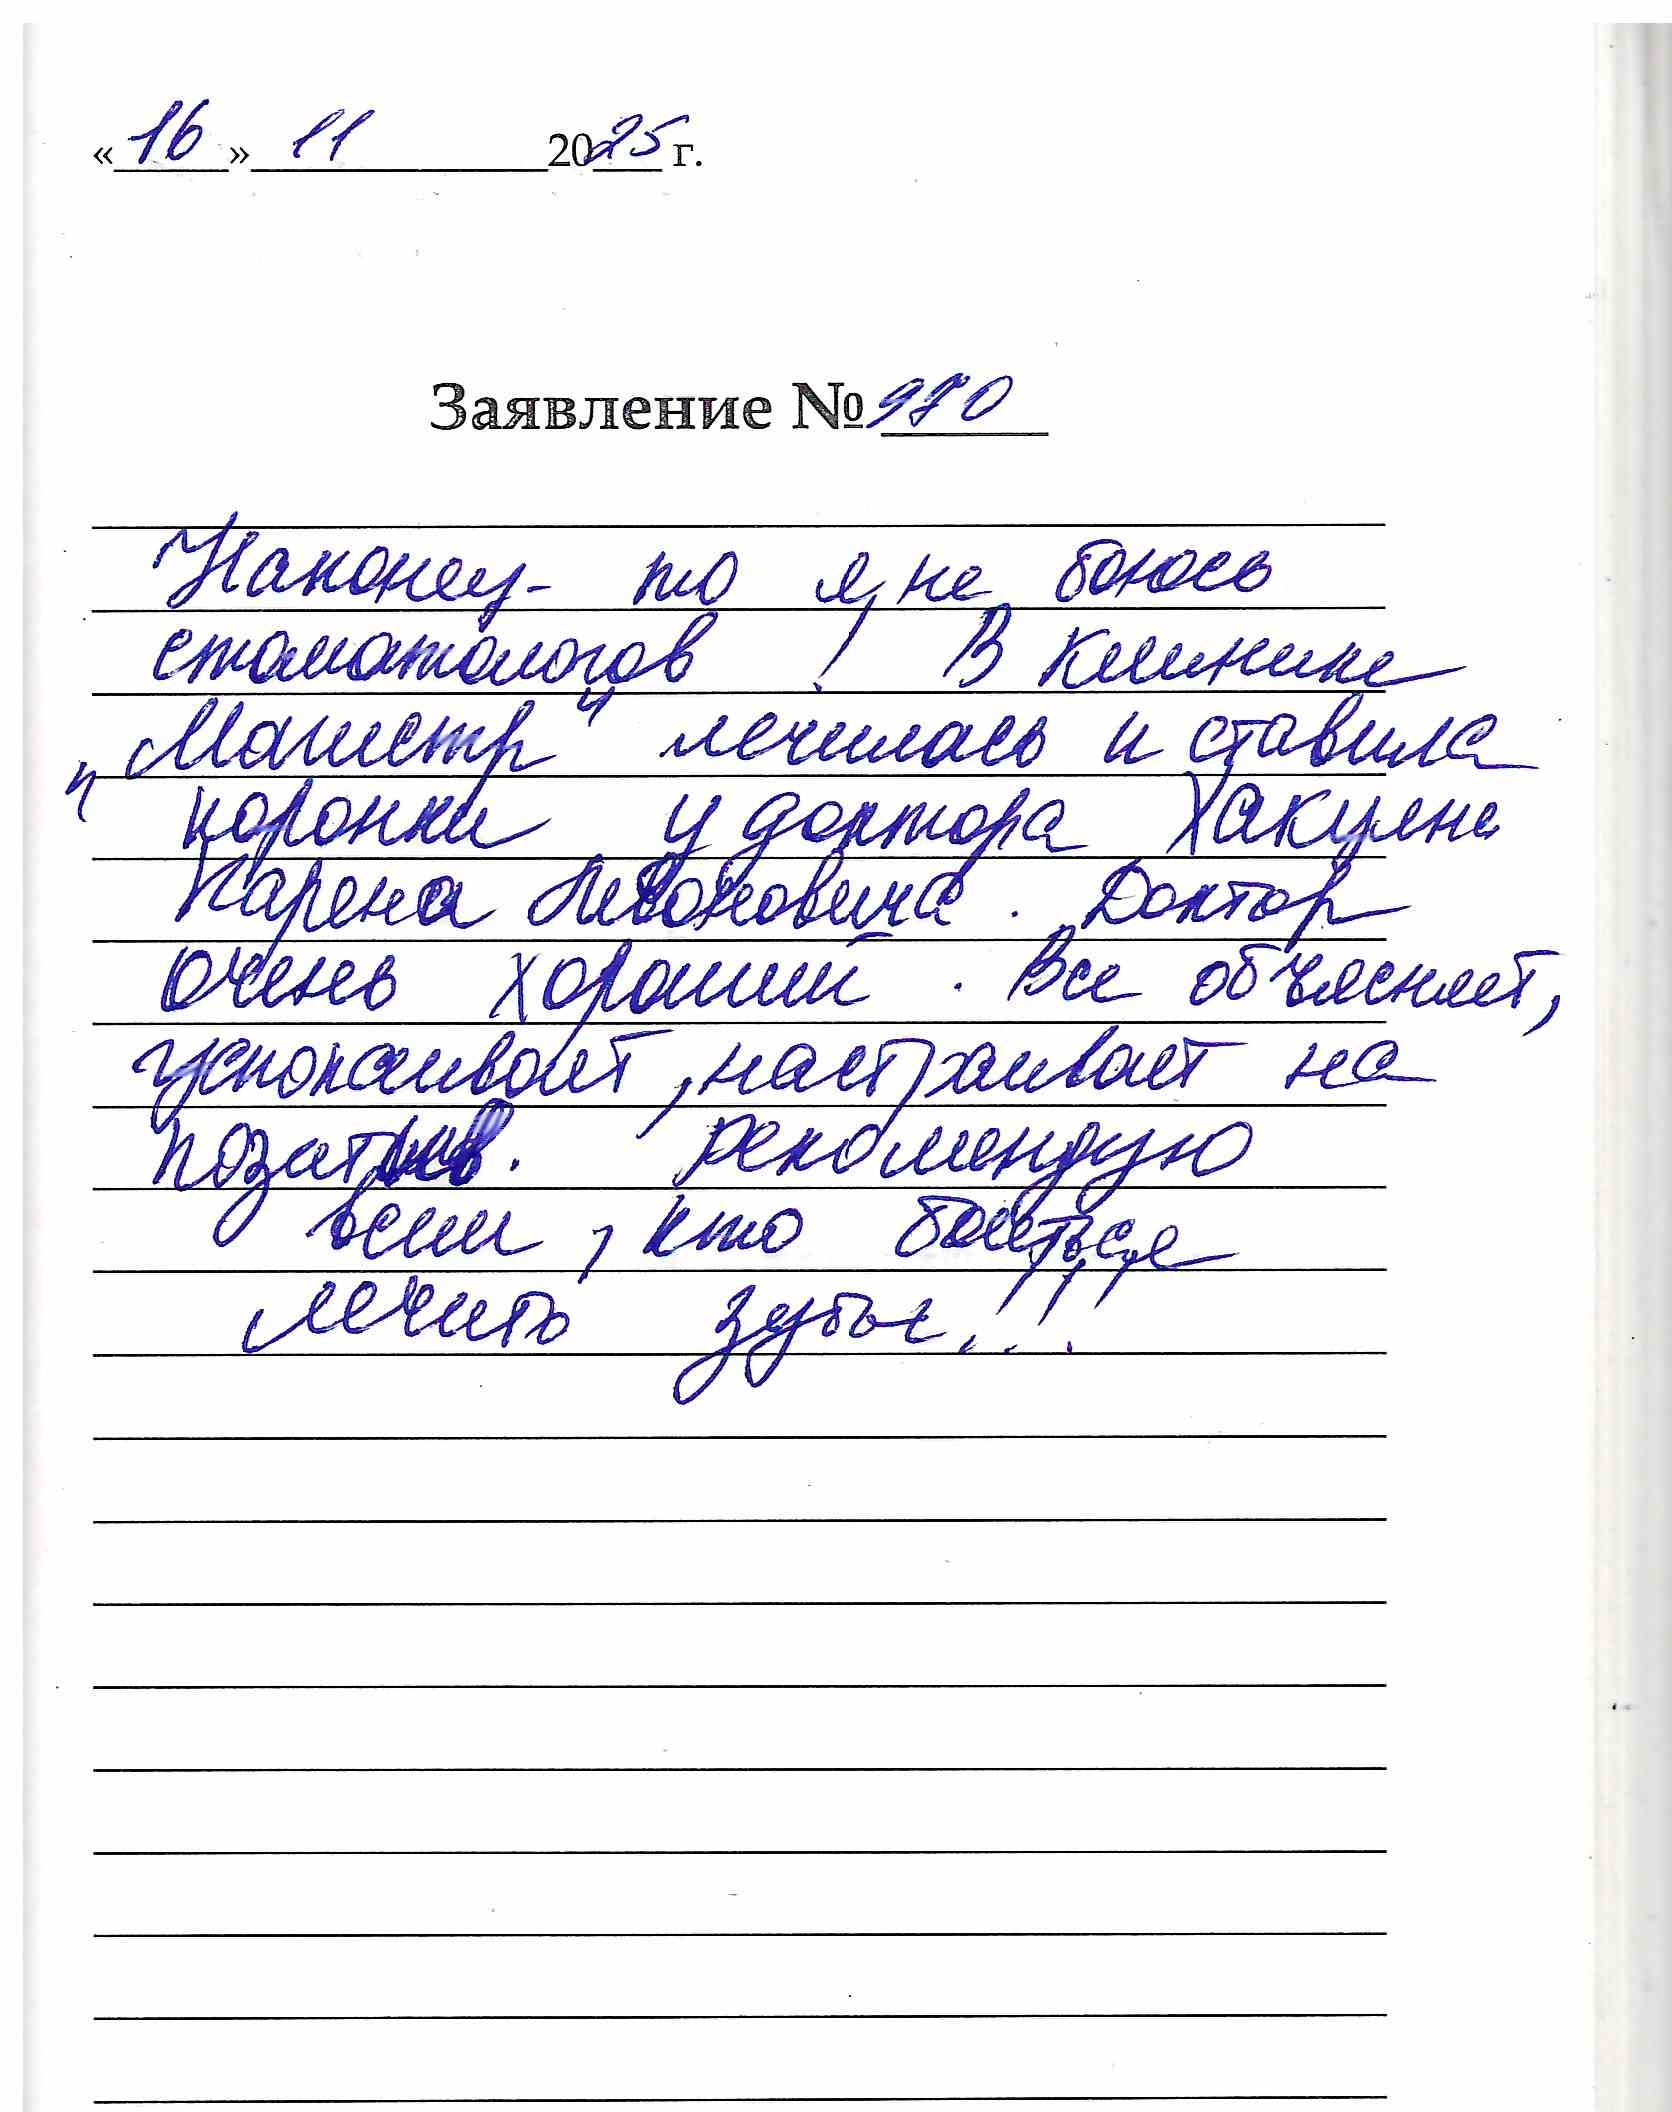 «16» 11 2025 г.
Заявление № 970
Наконец-то я не боюсь
стоматологов! В клинике
"Магистр" лечилась и ставила
коронки у доктора Хакуяна
Карена Левоновича. Доктор
очень хороший. Все объясняет,
успокаивает, настраивает на
позатив. Рекомендую
всем, кто боиться
лечить зубы!!!